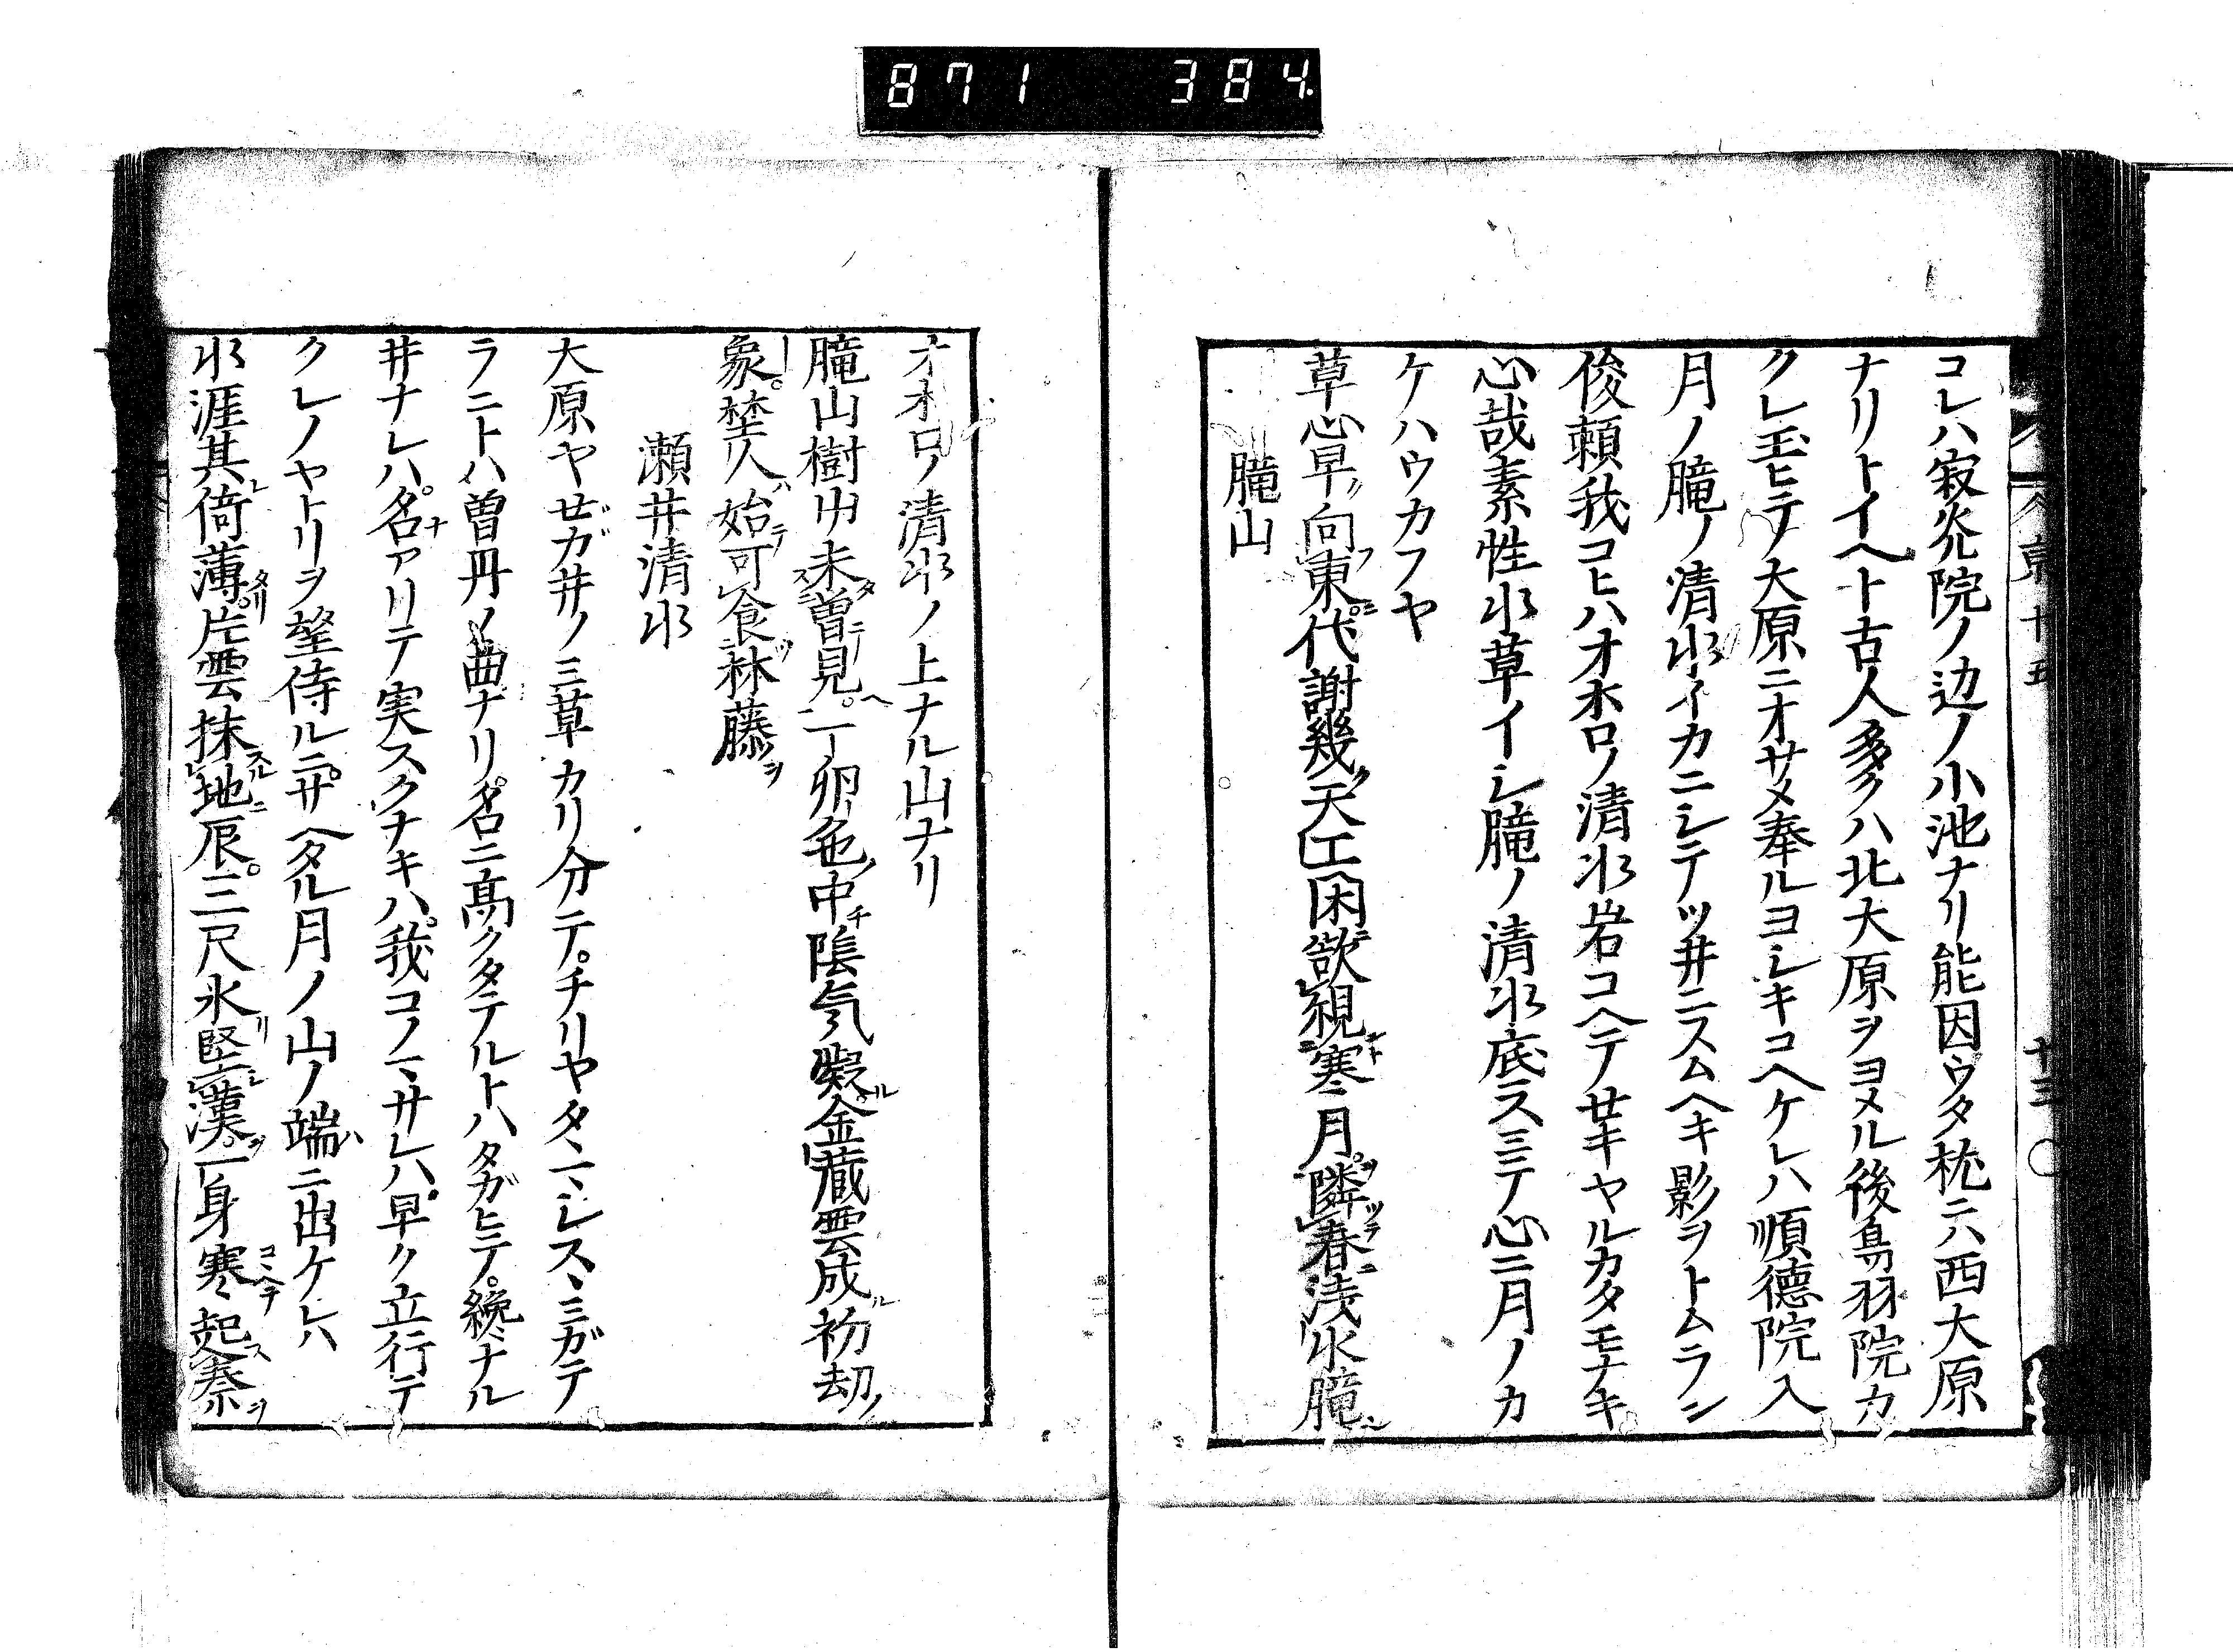 871 384
コレハ寂光院ノ辺ノ小池ナリ能因ウタ枕ニハ西大原
ナリトイヘト古人多クハ北大原ヲヨメル後鳥羽院カ
クレ玉ヒテノ大原ニオサメ奉ルヨシキコヘケレハ順徳院入
月ノ朧ノ清水イカニシテツ井ニスムヘキ影ヲトムラン
俊頼我コヒハオホロノ清水岩コヘテせキヤルカタモナキ
心哉素性水草イイシ朧ノ清水底スミテ心ニ月ノカ
ケハウカフヤ
草心早向東代謝幾天工困欲親寒月隣春浅水朧
朧山
オホロノ清水ノ上ナル山ナリ
朧山樹中未曽見一卵色中陰気凝金蔵雲成初劫
象埜人始可食林藤
瀬井清水
大原ヤせガ井ノ三草カリ分テチリヤタヽマレスヽミガテ
ラニトハ曽丹ノ曲ナリ名ニ高クタテルトハタガヒテ纔ナル
井ナレハ名アリテ実スクナキハ我コノマサレハ早ク立行テ
クレノヤトリヲ望侍ルニサヘタル月ノ山ノ端ニ出ケレハ
水涯其倚薄片雲抹地辰三尺氷堅漢一身寒起秦